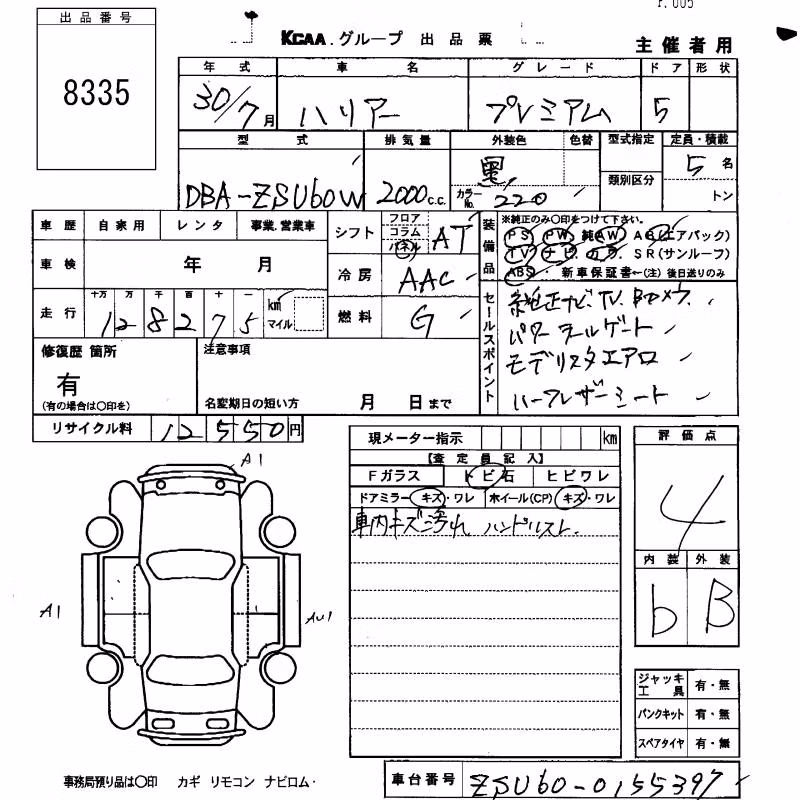 出品番号
8335
KCAA.グループ 出品票
主催者用
年式 車名 グレード ドア 形状
30/7月 ハリアー プレミアム 5
型式 排気量 外装色 色替 型式指定 定員・積載
類別区分
DBA-ZSU60W 2000c.c. 黒 カラーNo. 220 5名
トン
車歴 自家用 レンタ 事業.営業車
車検 年 月
走行 十万 万 千 百 十 一
128275 km マイル
シフト フロア コラム パネル AT
冷房 AAC
燃料 G
装備品
※純正のみ〇印をつけて下さい。
PS PW 純AW AB(エアバック)
TV ナビ カワ SR(サンルーフ)
ABS 新車保証書←(注)後日送りのみ
セールスポイント
純正ナビ.TV.Bカメラ.
パワーテールゲート
モデリスタエアロ
ハーフレザーシート
修復歴 箇所
有
(有の場合は〇印を)
注意事項
名変期日の短い方 月 日まで
リサイクル料 12550円
現メーター指示 km
【査定員記入】
Fガラス トビ石 ヒビワレ
ドアミラー キズ・ワレ ホイール(CP) キズ・ワレ
車内キズ汚れ ハンドルスレ.
評価点
4
内装 外装
b B
A1
A1
AU1
ジャッキ工具 有・無
パンクキット 有・無
スペアタイヤ 有・無
事務局預り品は〇印 カギ リモコン ナビロム・
車台番号 ZSU60-0155397